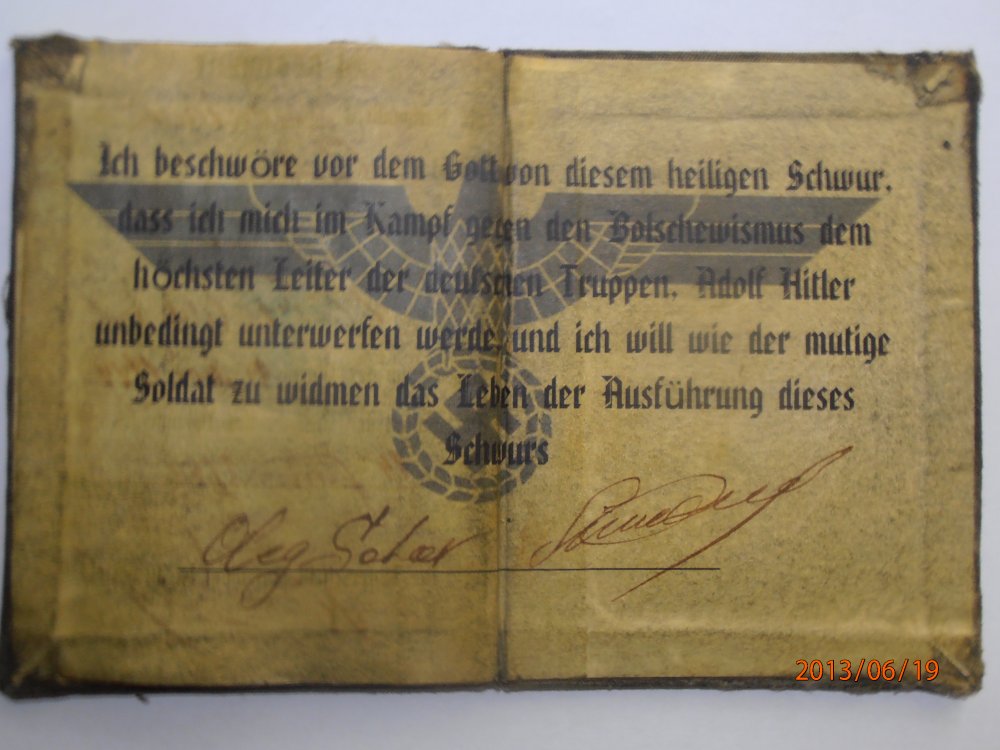 Ich beschwöre vor dem Gott von diesem heiligen Schwur,
dass ich mich im Kampf gegen den Bolschewismus dem
höchsten Leiter der deutschen Truppen, Adolf Hitler
unbedingt unterwerfen werde und ich will wie der mutige
Soldat zu widmen das Leben der Ausführung dieses
Schwurs
Oleg
2013/06/19